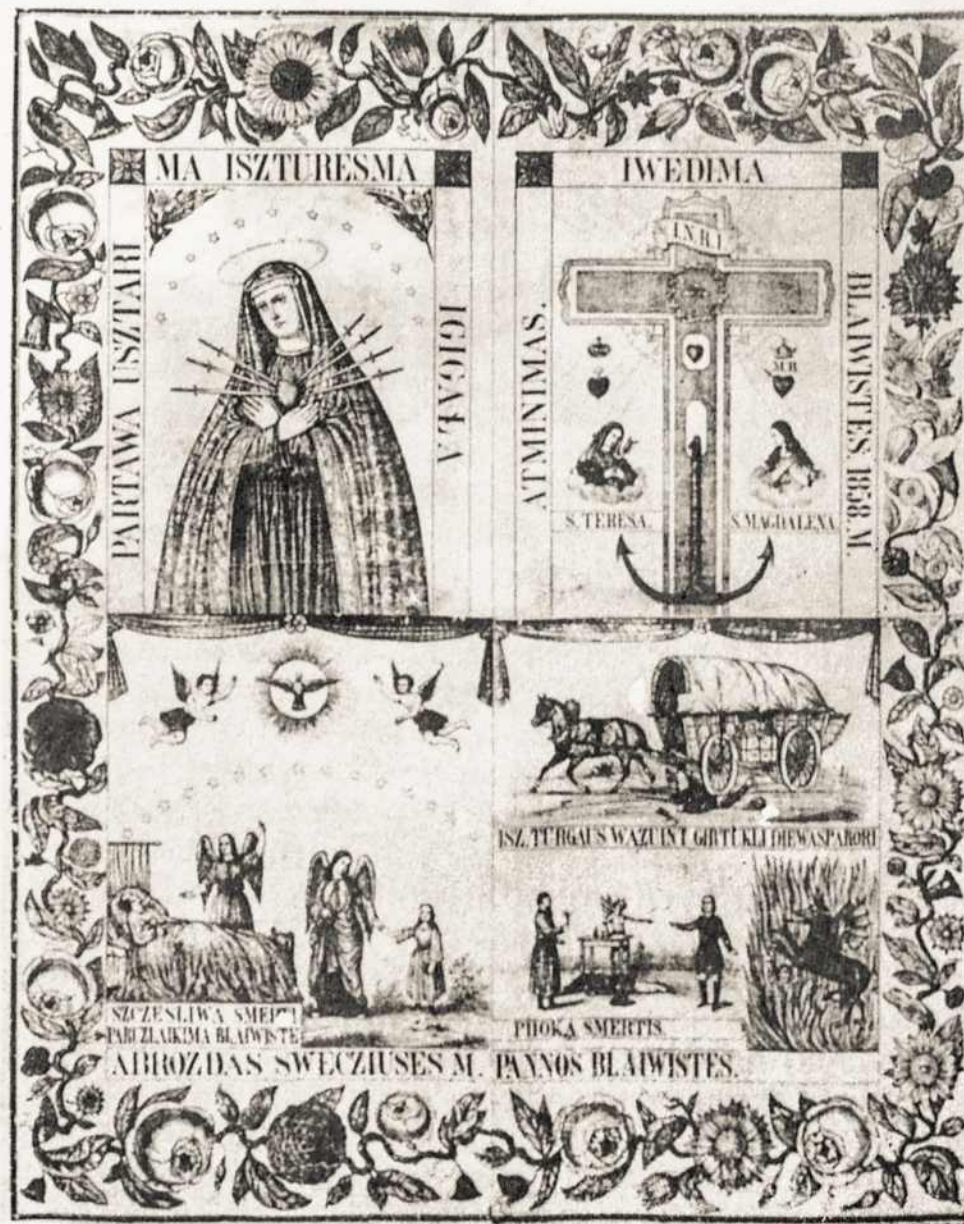 MA ISZTURESMA
PARTAWA USZTARI
IGIGAŁA
IWEDIMA
ATMINIMAS.
BLAIWISTES 1858. M.
I.N.R.I
M.B.
S. TERESA.
S. MAGDALENA
ISZ. TURGAUS WAZUINT GIRTUKLI DIEWAS PARORI
SZCZESLIWA SMERTI
PAR UZLAIKIMA BLAIWISTE
PIIOKA SMERTIS.
ABROZDAS SWECZIUSES M. PANNOS BLAIWISTES.